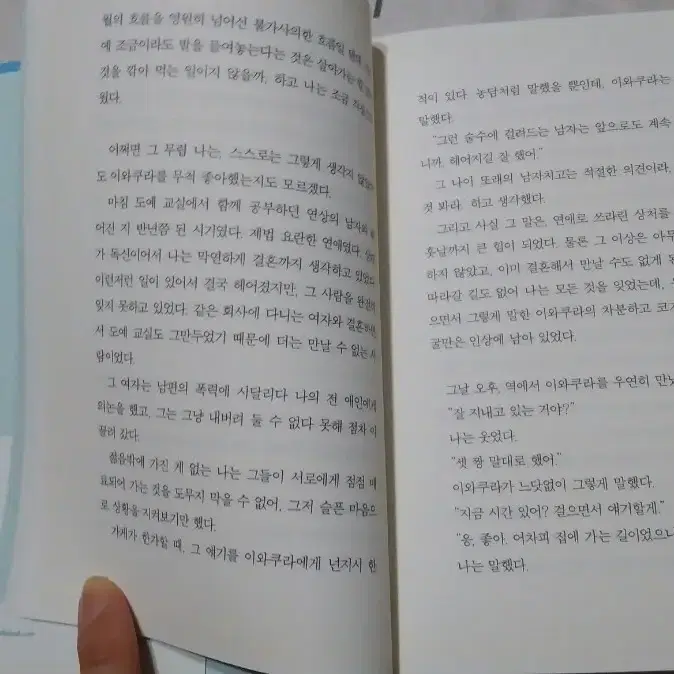 월의 흐름을 영원히 넘어선 불가사의한 흐름일 텐데
에 조금이라도 발을 들여놓는다는 것은 살아가는
것을 깎아 먹는 일이지 않을까, 하고 나는 조금
웠다.
어쩌면 그 무렵 나는, 스스로는 그렇게 생각지 않았
도 이와쿠라를 무척 좋아했는지도 모르겠다.
마침 도예 교실에서 함께 공부하던 연상의 남자와
어진 지 반년쯤 된 시기였다. 제법 요란한 연애였다.
가 독신이어서 나는 막연하게 결혼까지 생각하고 있었
이런저런 일이 있어서 결국 헤어졌지만, 그 사람을 완전히
잊지 못하고 있었다. 같은 회사에 다니는 여자와 결혼
서 도예 교실도 그만두었기 때문에 더는 만날 수 없는 사
람이었다.
그 여자는 남편의 폭력에 시달리다 나의 전 애인에게
의논을 했고, 그는 그냥 내버려 둘 수 없다 못해 점차 이
끌려 갔다.
젊음밖에 가진 게 없는 나는 그들이 서로에게 점점 매
료되어 가는 것을 도무지 막을 수 없어, 그저 슬픈 마음으
로 상황을 지켜보기만 했다.
가게가 한가할 때, 그 얘기를 이와쿠라에게 넌지시 한
적이 있다. 농담처럼 말했을 뿐인데, 이와쿠라는
말했다.
"그런 술수에 걸려드는 남자는 앞으로도 계속
니까, 헤어지길 잘 했어."
그 나이 또래의 남자치고는 적절한 의견이라,
것 봐라, 하고 생각했다.
그리고 사실 그 말은, 연애로 쓰라린 상처를
훗날까지 큰 힘이 되었다. 물론 그 이상은 아무
하지 않았고, 이미 결혼해서 만날 수도 없게 된
따라갈 길도 없어 나는 모든 것을 잊었는데,
으면서 그렇게 말한 이와쿠라의 차분하고 코가
굴만은 인상에 남아 있었다.
그날 오후, 역에서 이와쿠라를 우연히 만났
"잘 지내고 있는 거야?"
나는 웃었다.
"셋 짱 말대로 했어."
이와쿠라가 느닷없이 그렇게 말했다.
"지금 시간 있어? 걸으면서 얘기할게."
"응, 좋아. 어차피 집에 가는 길이었으니
나는 말했다.